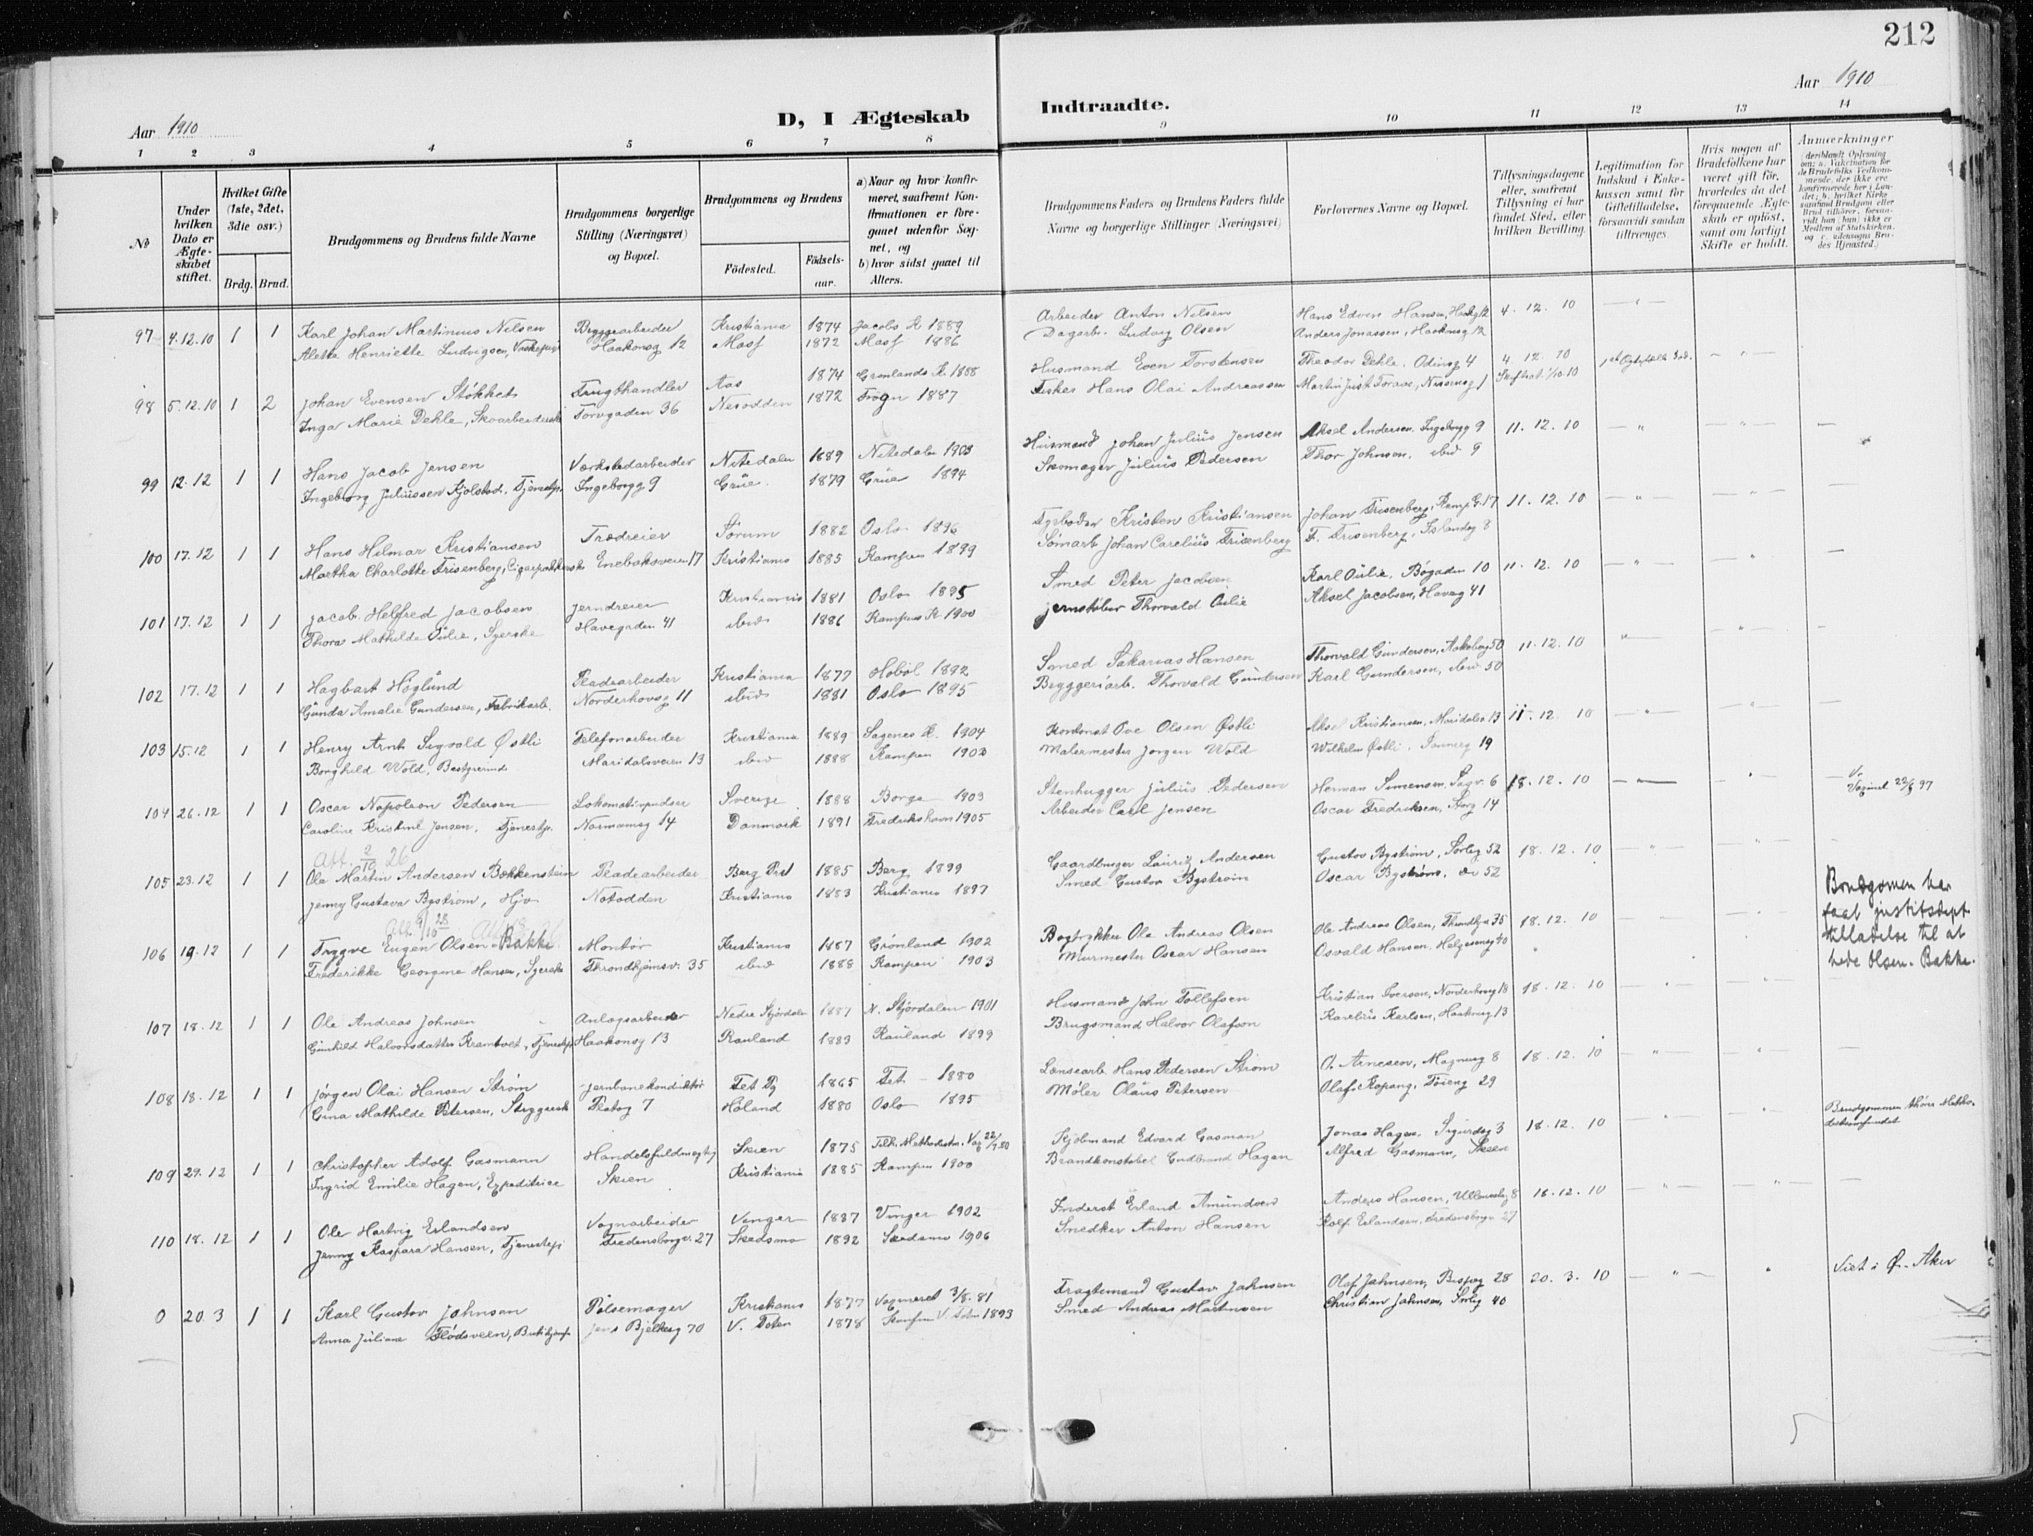 212
Aar 1910
D, I Ægteskab
Indtraadte.
Aar 1910
1 2 3 4 5 6 7 8
9 10 11 12 13 14
№
Under hvilken Dato er Ægteskabet stiftet.
Hvilket Gifte (1ste, 2det, 3die osv.)
Brdg. Brud.
Brudgommens og Brudens fulde Navne
Brudgommens borgerlige Stilling (Næringsvei) og Bopæl.
Brudgommens og Brudens
Födested.
Födselsaar.
a) Naar og hvor konfirmeret, saafremt Konfirmationen er foregaaet udenfor Sognet, og
b) hvor sidst gaaet til Alters.
Brudgommens Faders og Brudens Faders fulde Navne og borgerlige Stillinger (Næringsvei)
Forlovernes Navne og Bopæl.
Tillysningsdagene eller, saafremt Tillysning ei har fundet Sted, efter hvilken Bevilling.
Legitimation for Indskud i Enkekassen samt för Giftetilladelse, forsaavidt saadan tiltrænges
Hvis nogen af Brudefolkene har været gift för, hvorledes da det foregaaende Ægteskab er oplöst, samt om lovligt Skifte er holdt.
Anmærkninger
deriblandt Oplysning om: a. Vakcination for de Brudefolks Vedkommende, der ikke ere konfirmerede her i Landet; b. hvilket Kirkesamfund Brudgom eller Brud tilhörer, forsaavidt han (hun) ikke er Medlem af Statskirken, og c. udensogns Brudes Hjemsted.)
97 4.12.10 1 1 Karl Johan Martinius Nilsen Byggearbeider Kristiania 1874 Jacobs K 1889 Arbeider Anton Nilsen Hans Edvin Hansen, Haakg 12 4. 12. 10
Aletta Henriette Ludvigsen, Haakonsg 12 Moss 1872 Moss 1886 Dagarb. Ludvig Olsen Anders Jonassen, Haakonsg 12
98 5.12.10 1 2 Johan Evensen Stokket Frugthandler Aas 1874 Grønlands K. 1888 Husmand Even Torstensen Theodor Dehle, Odinsg 4 4. 12. 10
Inga Marie Dehle, Skoarbeiderske Torvgaden 36 Nesodden 1872 Frogn 1887 Fisker Hans Olai Andreassen
99 12.12 1 1 Hans Jacob Jensen Værkstedarbeider Nitedalen 1889 Nitedalen 1903 Husmand Johan Julius Jensen Aksel Andersen, Ingeborgg 9 11. 12. 10
Ingeborg Juliussen Kjolstad, Tjenestp. Ingeborgg 9 Grue 1879 Grue 1894 Skomager Julius Pedersen Thor Johnsen, ibid 9
100 17.12 1 1 Hans Hilmar Kristiansen Trædreier Sørum 1882 Oslo 1896 Kristen Kristiansen Johan Frisenberg, Kamp. G. 17 11. 12. 10
Martha Charlotte Frisenberg, Enebaksveien 17 Kristiania 1885 Kampen 1899 Johan Carelius Frisenberg F. Frisenberg, Islandsg 8
101 17.12 1 1 Jacob Helfred Jacobsen Jerndreier Kristiania 1881 Oslo 1895 Smed Peter Jacobsen Karl Oulie, Bøgaden 10 11. 12. 10
Thora Mathilde Oulie, Syerske Havegaden 41 ibid 1886 Kampens K. 1900 Jernstøber Thorvald Oulie Aksel Jacobsen, Haveg 41
102 17.12 1 1 Hagbart Höglund Pladearbeider Kristiania 1877 Hobøl 1892 Smed Sakarias Hansen Thorvald Gundersen, Aakebergv 50 11. 12. 10
Gunda Amalie Gundersen, Fabrikarb. Norderhovsg 11 ibid 1881 Oslo 1895 Bryggeriarb. Thorvald Gundersen Karl Gundersen, ibid 50
103 15.12 1 1 Henry Arnt Sigvald Østli Telefonarbeider Kristiania 1889 Sagenes K. 1904 Ove Olsen Østli Aksel Kristiansen, Maridalsv 13 11. 12. 10
Borghild Wold, Bestyrerinde Maridalsveien 13 ibid 1888 Kampen 1902 Malermester Jørgen Wold Wilhelm Østli, 19
104 26.12 1 1 Oscar Napoleon Pedersen Lokomotivpudser Sverige 1888 Borge 1903 Stenhugger Julius Pedersen Herman Simensen, Sagv. 6 18. 12. 10 V. Vaccinet 23/6 97
Caroline Kristine Jensen, Tjenestp. Normannsg 14 Danmark 1891 Fredrikshavn 1905 Arbeider Carl Jensen Oscar Fredriksen, 14
Att. 2/10 26
105 23.12 1 1 Ole Martin Andersen Bækkenstein Pladearbeider Berg Prd 1885 Berg 1899 Gaardbruger Lauritz Andersen Gustav Bystrøm, Sørlig 52 18. 12. 10
Jenny Gustava Bystrøm, Hjv Notodden Kristiania 1883 Kristiania 1897 Smed Gustav Bystrøm Oscar Bystrøm, do 52
Att. 9/10 28
106 19.12 1 1 Trygve Eugen Olsen-Bakke Montør Kristiania 1887 Grønland 1902 Bogtrykker Ole Andreas Olsen Ole Andreas Olsen, Throndhjsv 35 18. 12. 10
Frederikke Georgine Hansen, Syerske Throndhjemsv. 35 ibid 1888 Kampen 1903 Murmester Oscar Hansen Osvald Hansen, Helgesensg 40
Brudgomen har faat justitsdept tilladelse til at hede Olsen-Bakke.
107 18.12 1 1 Ole Andreas Johnsen Anlægsarbeider Nedre Stjørdalen 1887 N. Stjørdalen 1901 Husmand John Tollefsen Kristian Iversen, Norderhovsg 18 18. 12. 10
Gunhild Halvorsdatter Kramboet, Tjenestep Haakonsg 13 Rauland 1883 Rauland 1899 Brugsmand Halvor Olafson Karelius Karlsen, Haakonsg 13
108 18.12 1 1 Jørgen Olai Hansen Strøm Jernbanekonduktør Fet Pg 1865 Fet 1880 Lænsearb. Hans Pedersen Strøm O. Arnesen, Magnusg 8 18. 12. 10
Gina Mathilde Petersen, Strygerske Platog 7 Høland 1880 Oslo 1895 Møler Olaus Petersen Olaf Kopang, Tøieng 29
109 29.12 1 1 Christopher Adolf Gasmann Handelsfuldmægtig Skien 1875 Tilh. Methodistm. Vac 22/7 80 Kjøbmand Edvard Gasman Jonas Hagen, Sigurdsg 3 18. 12. 10
Ingrid Emilie Hagen, Expeditrice Skien Kristiania 1885 Kampen 1900 Brandkonstabel Gudbrand Hagen Alfred Gasmann, Skien
Brudgommen tilhører Methodistsamfundet
110 18.12 1 1 Ole Hartvig Erlandsen Vognarbeider Vinger 1887 Vinger 1902 Inderst Erland Amundsen Anders Hansen, Ullensakg 8 18. 12. 10
Jenny Kaspara Hansen, Tjenestepi Fredensborgv. 27 Skedsmo 1892 Skedsmo 1906 Smedker Anton Hansen Rolf Erlandsen, Fredensborgv 27
0 20.3 1 1 Karl Gustav Johnsen Pølsemager Kristiania 1877 Vaccineret 3/8. 81 Fragtemand Gustav Johnsen Olaf Johnsen, Bispeg 28 20. 3. 10 Viet i Ø. Aker
Anna Juliane Flodsveen, Jens Bjelkesg 70 V. Toten 1878 Konfm V. Toten 1893 Smed Andreas Martinsen Christian Johnsen, Smeg 40